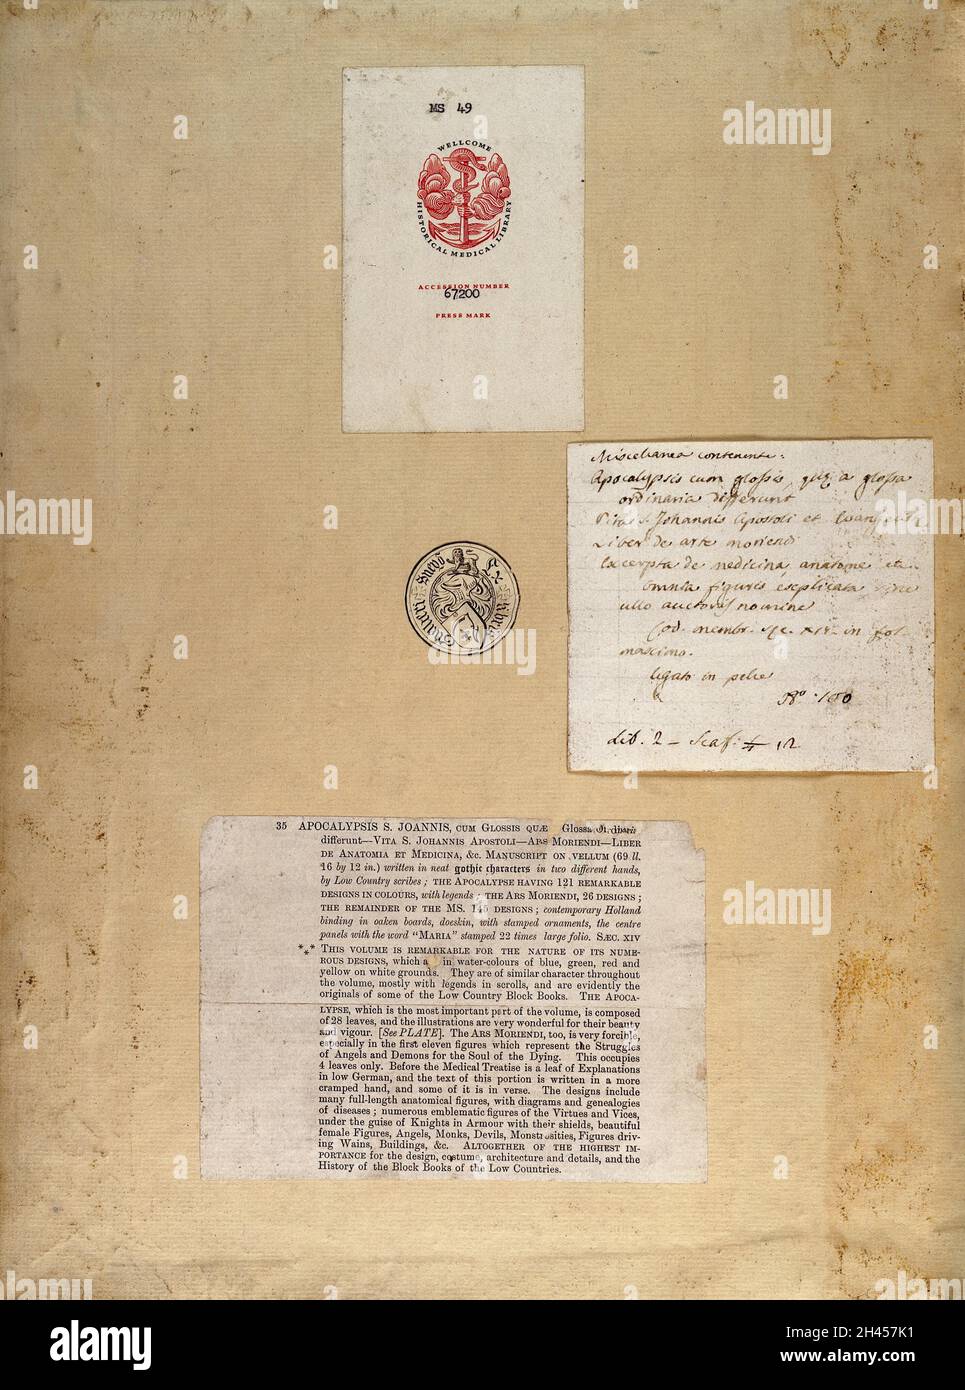 MS 49
WELLCOME
HISTORICAL MEDICAL LIBRARY
ACCESSION NUMBER
67200
PRESS MARK
Miscellanea contenente:
Apocalypsis cum glossis, quæ a glossa
ordinaria differunt
S. Johannis Apostoli et
Liber de arte moriendi
Excerpta de medicina, anatome
omnia figuris explicata sine
ullo auctoris nomine
Cod. membr. sæc. XIV. in fol.
maximo.
ligato in pelle
Nº. 100
Lib. 2 - Scaf. 4 12
Ex Libris
35 APOCALYPSIS S. JOANNIS, CUM GLOSSIS QUÆ Glossa Ordinaria
differunt—VITA S. JOHANNIS APOSTOLI—ARS MORIENDI—LIBER
DE ANATOMIA ET MEDICINA, &c. MANUSCRIPT ON VELLUM (69 ll.
16 by 12 in.) written in neat gothic characters in two different hands,
by Low Country scribes; THE APOCALYPSE HAVING 121 REMARKABLE
DESIGNS IN COLOURS, with legends; THE ARS MORIENDI, 26 DESIGNS;
THE REMAINDER OF THE MS. 145 DESIGNS; contemporary Holland
binding in oaken boards, doeskin, with stamped ornaments, the centre
panels with the word "MARIA" stamped 22 times large folio. SÆC. XIV
*** THIS VOLUME IS REMARKABLE FOR THE NATURE OF ITS NUME-
ROUS DESIGNS, which a in water-colours of blue, green, red and
yellow on white grounds. They are of similar character throughout
the volume, mostly with legends in scrolls, and are evidently the
originals of some of the Low Country Block Books. THE APOCA-
LYPSE, which is the most important part of the volume, is composed
of 28 leaves, and the illustrations are very wonderful for their beauty
and vigour. [See PLATE]. The ARS MORIENDI, too, is very forcible,
especially in the first eleven figures which represent the Struggles
of Angels and Demons for the Soul of the Dying. This occupies
4 leaves only. Before the Medical Treatise is a leaf of Explanations
in low German, and the text of this portion is written in a more
cramped hand, and some of it is in verse. The designs include
many full-length anatomical figures, with diagrams and genealogies
of diseases; numerous emblematic figures of the Virtues and Vices,
under the guise of Knights in Armour with their shields, beautiful
female Figures, Angels, Monks, Devils, Monstrosities, Figures driv-
ing Wains, Buildings, &c. ALTOGETHER OF THE HIGHEST IM-
PORTANCE for the design, costume, architecture and details, and the
History of the Block Books of the Low Countries.
alamy
a
alamy
Image ID: 2H457K1
www.alamy.com